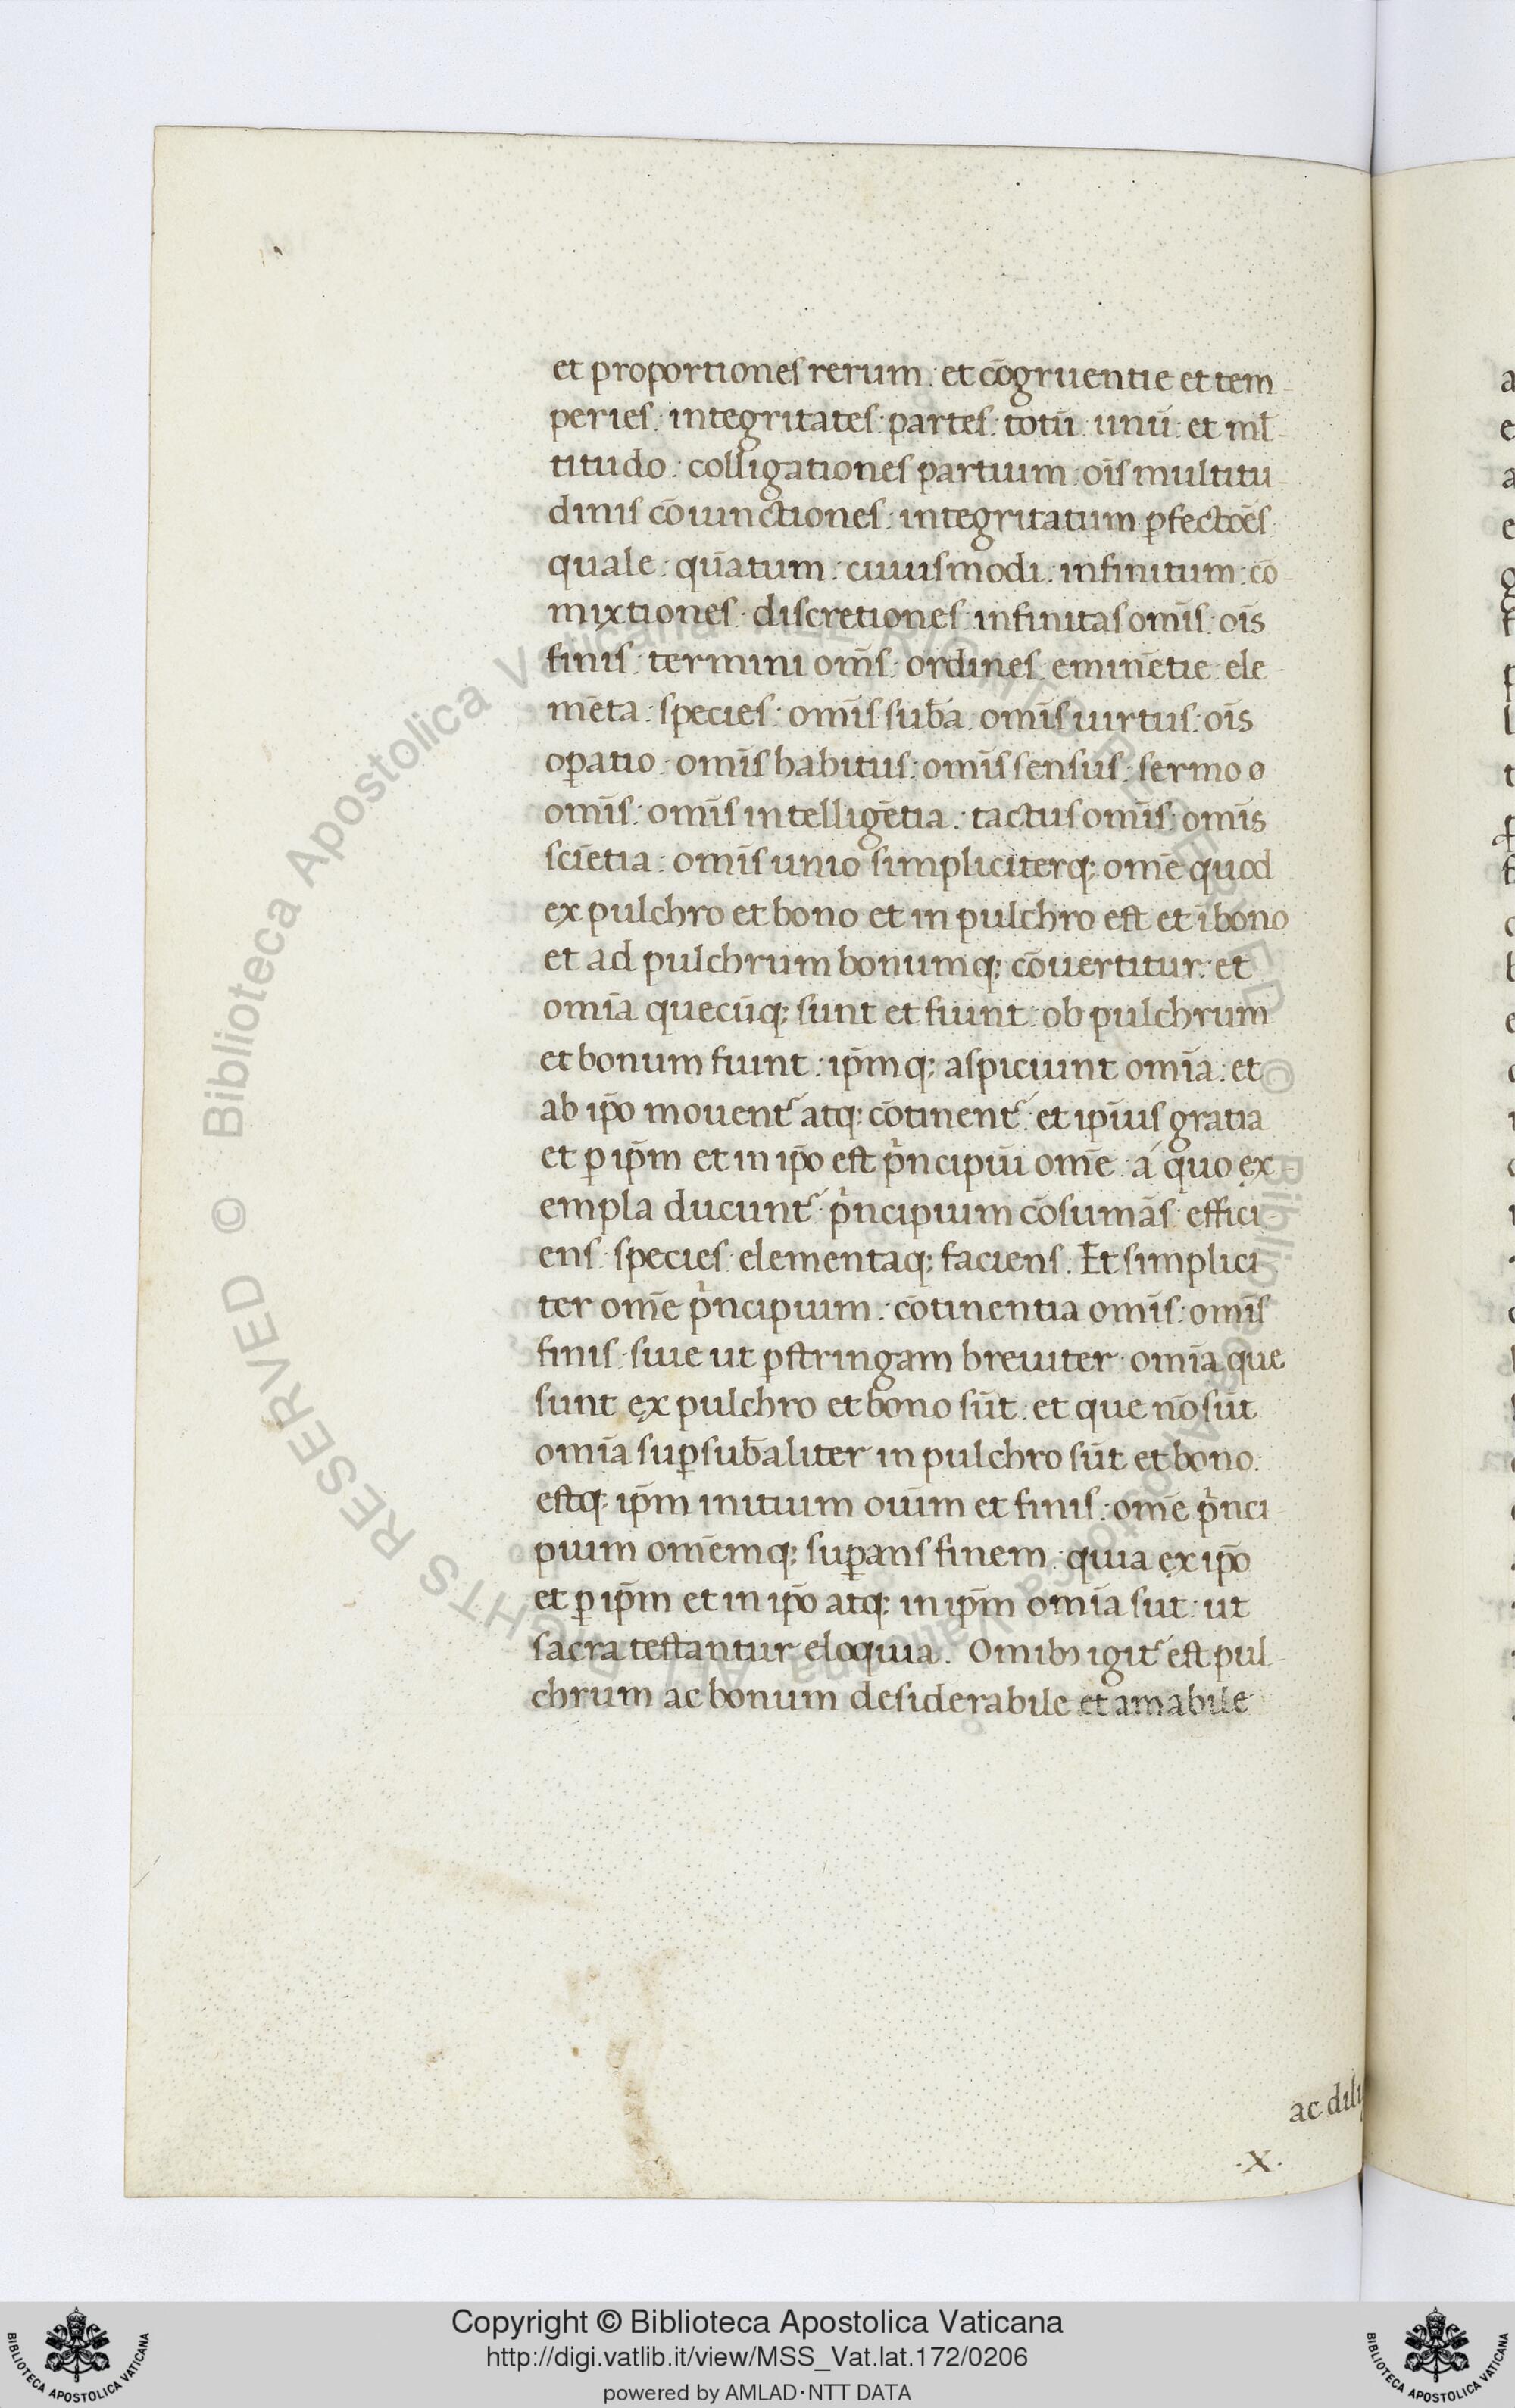 et proportiones rerum : et cōgruentie et tem-
peries : integritates : partes : totū : unū : et ml̄-
titudo : colligationes partium : oīs multitu-
dinis cōiunctiones : integritatum ꝑfectōēs
quale : quātum : cuiusmodi : infinitum : cō-
mixtiones : discretiones : infinitas omīs : oīs
finis : termini om̄s : ordines : eminētie : ele-
mēta : species : omīs sub̄a : omīs uirtus : oīs
oꝑatio : omīs habitus : omīs sensus : sermo o
omīs : omīs intelligētia : tactus omīs : omīs
sciētia : omīs unio simpliciterq; omē quod
ex pulchro et bono et in pulchro est et ī bono
et ad pulchrum bonumq; cōuertitur : et
omīa quecūq; sunt et fiunt : ob pulchrum
et bonum fiunt : ip̄mq; aspiciunt omīa : et
ab ip̄o mouent᷑ atq; cōtinent᷑ : et ip̄ius gratia
et ꝑ ip̄m et in ip̄o est pͥncipiū omē : á quo ex-
empla ducunt᷑ : pͥncipium cōsumās : effici-
ens : species : elementaq; faciens . Et simplici-
ter omē pͥncipium : cōtinentia omīs : omīs
finis : siue ut ꝑstringam breuiter : omīa que
sunt ex pulchro et bono sūt : et que nō sūt
omīa suꝑsub̄aliter in pulchro sūt et bono :
estq; ip̄m initium oīum et finis : omē pͥnci-
pium omēmq; suꝑans finem : quia ex ip̄o
et ꝑ ip̄m et in ip̄o atq; in ip̄m omīa sūt : ut
sacra testantur eloquia . Omībꝫ igit᷑ est pul-
chrum ac bonum desiderabile et amabile
ac dili
.X.
Copyright © Biblioteca Apostolica Vaticana
http://digi.vatlib.it/view/MSS_Vat.lat.172/0206
powered by AMLAD·NTT DATA